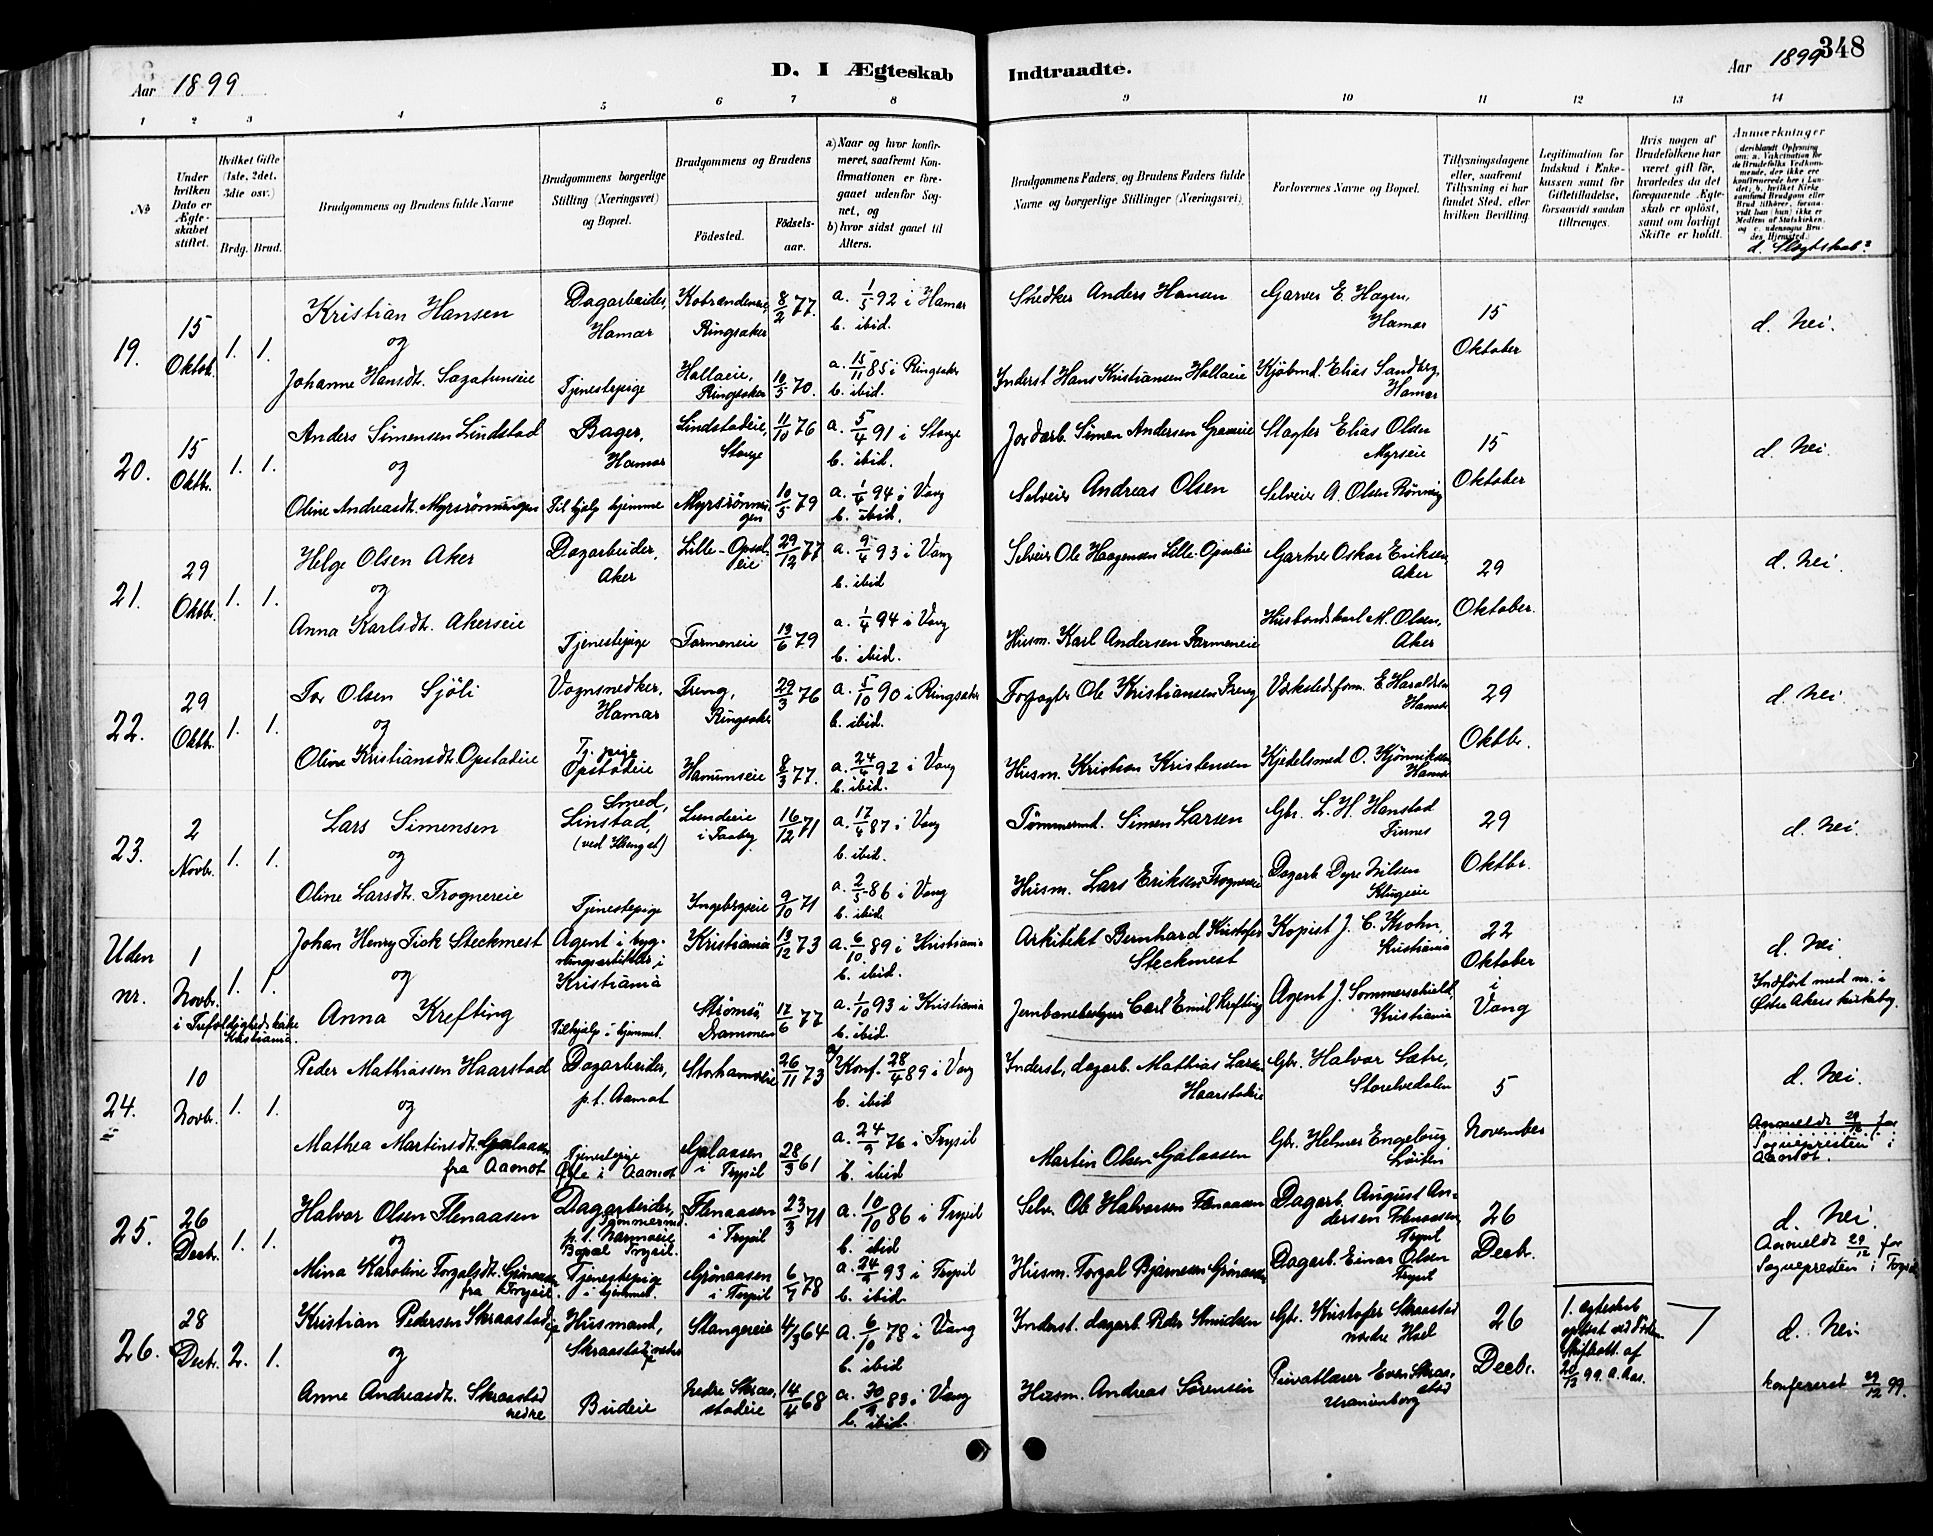 348
Aar 1899 D. I Ægteskab Indtraadte. Aar 1899
1 2 3 4 5 6 7 8 9 10 11 12 13 14
No
Under hvilken Dato er Ægteskabet stiftet.
Hvilket Gifte (1ste, 2det, 3die osv.)
Brdg. Brud.
Brudgommens og Brudens fulde Navne
Brudgommens borgerlige Stilling (Næringsvei) og Bopæl.
Brudgommens og Brudens
Fødested.
Fødselsaar.
a) Naar og hvor konfirmeret, saafremt Konfirmationen er foregaaet udenfor Sognet, og
b) hvor sidst gaaet til Alters.
Brudgommens Faders, og Brudens Faders fulde Navne og borgerlige Stillinger (Næringsvei).
Forlovernes Navne og Bopæl.
Tillysningsdagene eller, saafremt Tillysning ei har fundet Sted, efter hvilken Bevilling.
Legitimation for Indskud i Enkekassen samt for Giftetilladelse, forsaavidt saadan tiltrænges.
Hvis nogen af Brudefolkene har været gift før, hvorledes da det foregaaende Ægteskab er opløst, samt om lovligt Skifte er holdt.
Anmerkninger
(deriblandt Oplysning om: a. Vakcination for de Brudefolks Vedkommende, der ikke ere konfirmerede her i Landet; b. hvilket Kirkesamfund Brudgom eller Brud tilhører, forsaavidt han (hun) ikke er Medlem af Statskirken, og c. udensogns Brudes Hjemsted.)
d. Slægtskab?
19. 15 Oktob. 1. 1.
Kristian Hansen Dagarbeider, Hamar Ringsaker 8/2 77. a. 1/5 92 i Hamar b. ibid. Anders Hansen Garver E. Hagen, Hamar 15 Oktober d. Nei.
og
Johanne Hansdt. Tjenestepige Hallaeie, Ringsaker 10/5 70. a. 15/11 85 i Ringsaker b. ibid. Inderst Hans Kristiansen Hallaeie Kjøbmd. Elias Sandberg, Hamar
20. 15 Oktbr. 1. 1.
Anders Simensen Lindstad Bager, Hamar Lindstadeie, Stange 11/10 76 a. 5/4 91 i Stange b. ibid. Jordarb. Simen Andersen Slagter Elias Olsen Myrseie 15 Oktober d. Nei.
og
Oline Andreasdt. Myrsrønningen Til hjelp hjemme Myrsrønningen 10/5 79 a. 1/4 94 i Vang b. ibid. Selveier Andreas Olsen Selveier A. Olsen Rønnig
21. 29 Oktbr. 1. 1.
Helge Olsen Aker Dagarbeider, Aker Lille-Opsaleie 29/12 77 a. 9/4 93 i Vang b. ibid Selveier Ole Haagensen Lille-Opsaleie Gartner Oskar Eriksen, Aker 29 Oktober. d. Nei.
og
Anna Karlsdt. Akerseie Tjenestepige Farmeneie 13/6 79 a. 1/4 94 i Vang b. ibid. Husm. Karl Andersen Farmeneie Husbondskarl M. Olsen, Aker
22. 29 Oktbr. 1. 1.
Tor Olsen Sjöli Vognsnedker, Hamar Freng, Ringsaker 29/3 76 a. 5/10 90 i Ringsaker b. ibid. Forpagter Ole Kristiansen Freng Værkstedsform. E. Haraldsen Hamar 29 Oktbr. d. Nei.
og
Oline Kristiansdt. Opstadeie Tj. pige Opstadeie Hanumseie 8/3 77. a. 24/4 92 i Vang b. ibid. Husm. Kristian Kristensen Kjedelsmed O. Kjønniksen Hamar
23. 2 Novbr. 1. 1.
Lars Simensen Smed, Linstad, Lundeie i Faaberg 16/12 71 a. 17/4 87 i Vang b. ibid. Tømmermd. Simen Larsen Gbr. L. H. Hanstad Finnes 29 Oktbr. d. Nei.
og
Oline Larsdt. Trognereie Tjenestepige Ingebergseie 9/10 71 a. 2/5 86 i Vang b. ibid. Husm. Lars Eriksen Trognereie Dagarb. Dyre Nilsen Klugeie
Uden nr. 1 Novbr. i Trefoldighedskirke Kristiania. 1. 1.
Johan Henry Fick Steckmest Agent i bygningsartikler i Kristiania Kristiania 13/12 73 a. 6/10 89 i Kristiania b. ibid. Arkitekt Bernhard Kristofer Steckmest Kopist J. C. Krohn, Kristiania 22 Oktober i Vang d. Nei
og
Anna Krefting Tilhjælp i hjemmet. Strømsö, Drammen 17/6 77 a. 1/10 93 i Kristiania b. ibid. Carl Emil Krefting Agent J. Sommerschield, Kristiania Indført med nr. i Østre Akers kirkebog.
24. 10 Novbr. 1. 1.
Peder Mathiassen Haarstad Dagarbeider, p.t. Aamot Storhamreie 26/11 73 a/ Konf. 28/4 89 i Vang b. ibid Inderst, dagarb. Mathias Larsen Haarstadeie Gbr. Halvor Sætre, Storelvedalen 5 November d. Nei.
og
Mathea Martinsdt. Galaasen fra Aamot Tjenestepige i Aamot Galaasen i Trysil 28/3 61 a. 24/9 76 i Trysil b. ibid Martin Olsen Galaasen Gbr. Helmer Engeloug Löiten Anmeldt 29/12 for Sognepresten i Aamot.
25. 26 Decbr. 1. 1.
Halvor Olsen Flenaasen Dagarbeider, Tømmermd. Bopæl Trysil. Flenaasen i Trysil 23/3 71 a. 10/10 86 i Trysil b. ibid Selv. Ole Halvorsen Flenaasen Dagarb. August Andersen Flenaasen, Trysil 26 Decbr. d. Nei.
og
Mina Karoline Torgalsdt. Grönaasen fra Trysil Tjenestepige i hjemmet. Grönaasen i Trysil 6/7 78 a. 24/9 93 i Trysil b. ibid. Husm. Torgal Bjørnesen Grönaasen Dagarb. Einar Olsen Trysil Anmeldt 29/12 for Sognepresten i Trysil
26. 28 Decbr. 2. 1.
Kristian Pedersen Skraastadeie Husmand, Stangereie 4/3 64 a. 6/10 78 i Vang b. ibid Inderst. dagarb. Peder Amundsen Gbr. Kristofer Skraastad nordre Hoel 26 Decbr. 1. ægteskab opløst ved Døden. Skifteatt. af 20/12 99. d. Nei.
og
Anne Andreasdt. Skraastad nedre Budeie Nedre Skraastadeie 14/4 68 a. 30/9 83 i Vang b. ibid. Husm. Andreas Sørensen Privatlærer Even Skraastad Uranienborg konfereret 29/12 99.